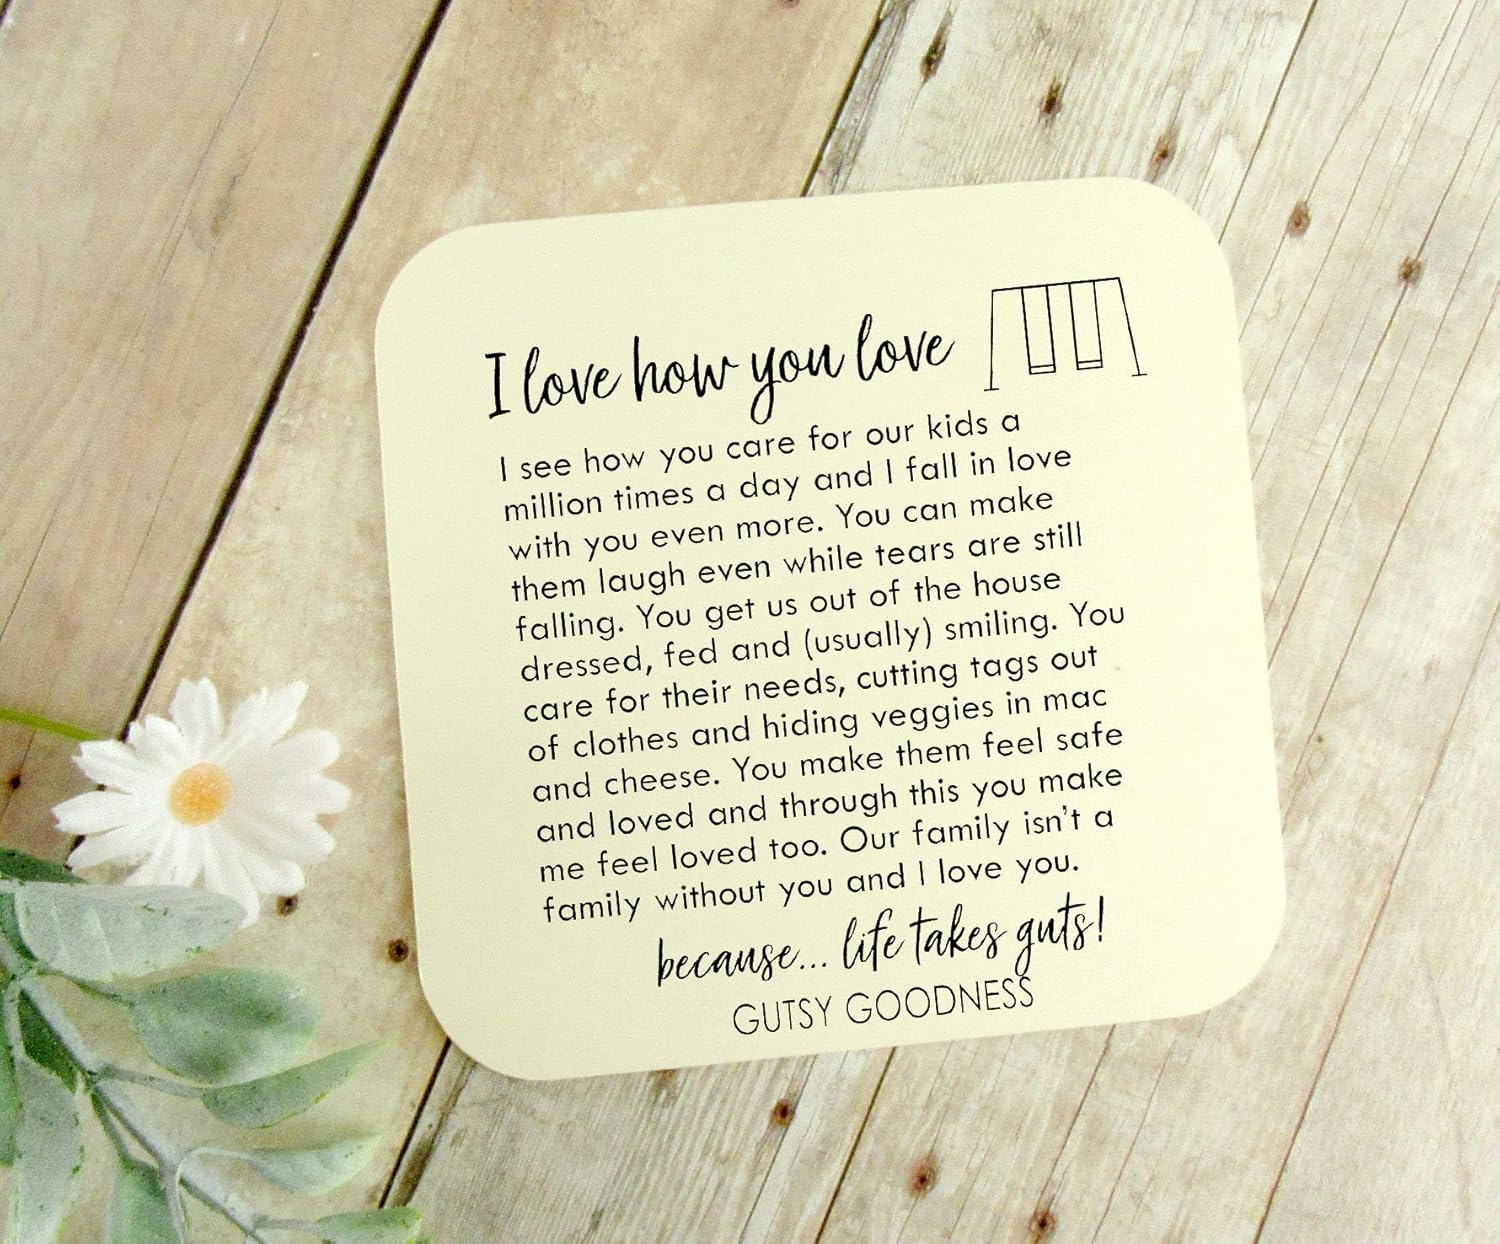 I love how you love
I see how you care for our kids a
million times a day and I fall in love
with you even more. You can make
them laugh even while tears are still
falling. You get us out of the house
dressed, fed and (usually) smiling. You
care for their needs, cutting tags out
of clothes and hiding veggies in mac
and cheese. You make them feel safe
and loved and through this you make
me feel loved too. Our family isn't a
family without you and I love you.
because... life takes guts!
GUTSY GOODNESS